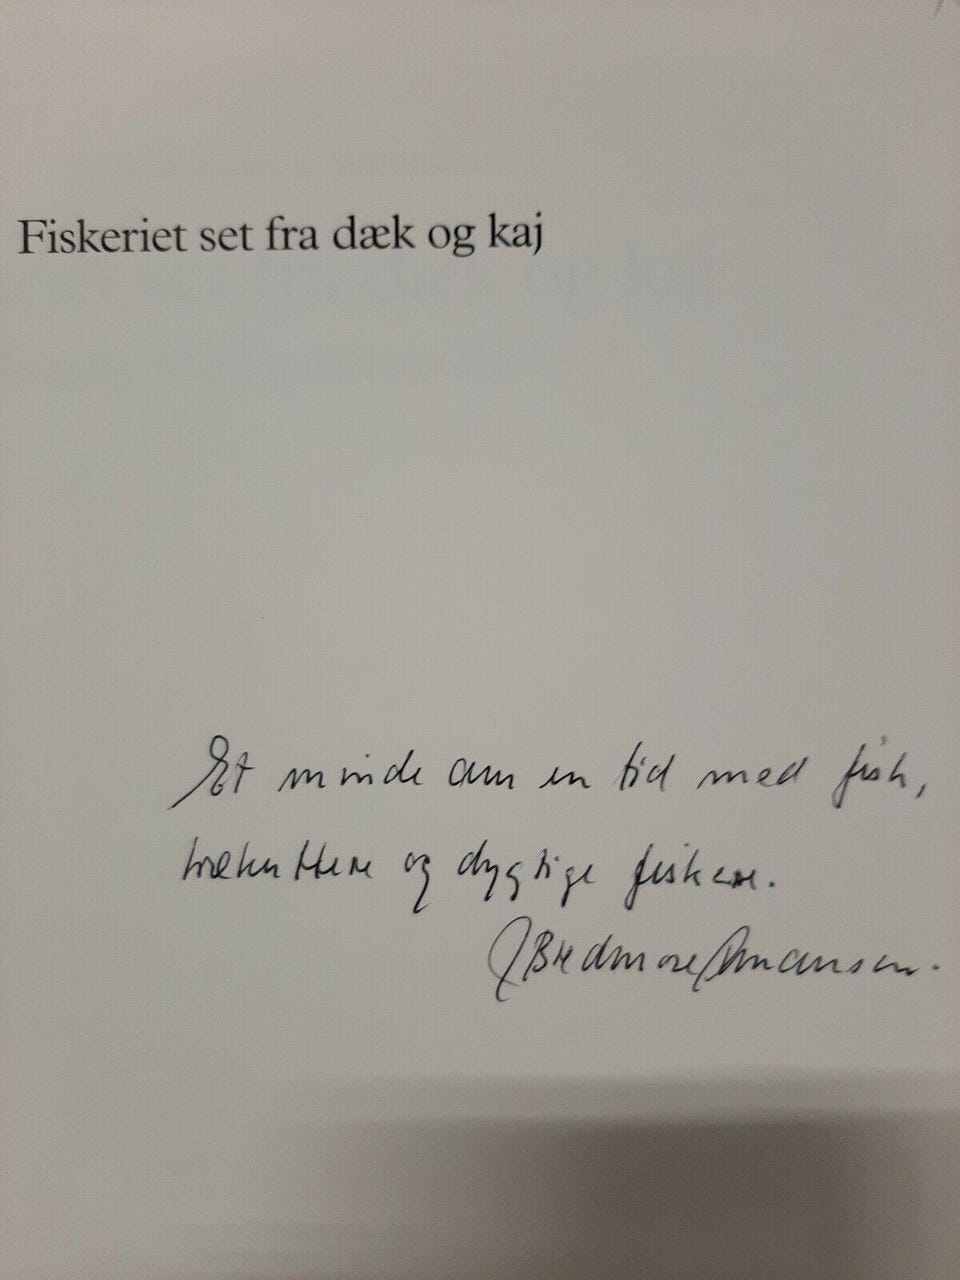 Fiskeriet set fra dæk og kaj
Et minde om en tid med fisk,
trækuttere og dygtige fiskere.